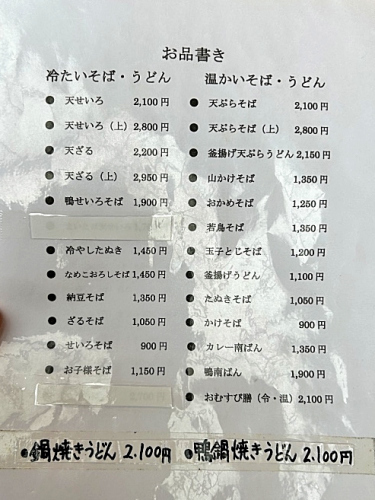 お品書き
冷たいそば・うどん
● 天せいろ 2,100円
● 天せいろ（上） 2,800円
● 天ざる 2,200円
● 天ざる（上） 2,950円
● 鴨せいろそば 1,900円
● 冷やしたぬき 1,450円
● なめこおろしそば 1,450円
● 納豆そば 1,350円
● ざるそば 1,050円
● せいろそば 900円
● お子様そば 1,150円
温かいそば・うどん
● 天ぷらそば 2,100円
● 天ぷらそば（上） 2,800円
● 釜揚げ天ぷらうどん 2,150円
● 山かけそば 1,350円
● おかめそば 1,250円
● 若鳥そば 1,350円
● 玉子とじそば 1,200円
● 釜揚げうどん 1,100円
● たぬきそば 1,050円
● かけそば 900円
● カレー南ばん 1,350円
● 鴨南ばん 1,900円
● おむすび膳（令・温） 2,100円
●鍋焼きうどん 2.100円 ●鴨鍋焼きうどん 2.100円